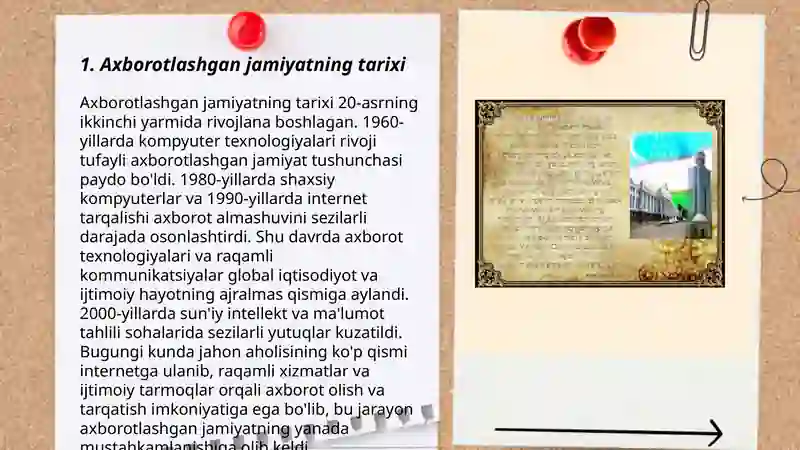 1. Axborotlashgan jamiyatning tarixi
Axborotlashgan jamiyatning tarixi 20-asrning
ikkinchi yarmida rivojlana boshlagan. 1960-
yillarda kompyuter texnologiyalari rivoji
tufayli axborotlashgan jamiyat tushunchasi
paydo bo'ldi. 1980-yillarda shaxsiy
kompyuterlar va 1990-yillarda internet
tarqalishi axborot almashuvini sezilarli
darajada osonlashtirdi. Shu davrda axborot
texnologiyalari va raqamli
kommunikatsiyalar global iqtisodiyot va
ijtimoiy hayotning ajralmas qismiga aylandi.
2000-yillarda sun'iy intellekt va ma'lumot
tahlili sohalarida sezilarli yutuqlar kuzatildi.
Bugungi kunda jahon aholisining ko'p qismi
internetga ulanib, raqamli xizmatlar va
ijtimoiy tarmoqlar orqali axborot olish va
tarqatish imkoniyatiga ega bo'lib, bu jarayon
axborotlashgan jamiyatning yanada
mustahkamlanishiga olib keldi.